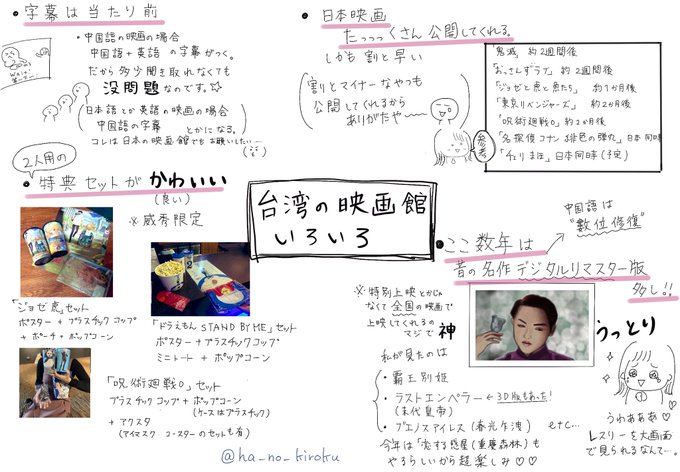 ・字幕は当たり前
・中国語の映画の場合
中国語+英語 の字幕がつく。
だから多少聞き取れなくても
没問題 なのです。☆
(日本語とか英語の映画の場合
中国語の字幕 とかになる。
コレは日本の映画館でもお願いしたい…)
2人用の
・特典セットが かわいい
(良い)
※威秀限定
「ジョゼ虎」セット
ポスター + プラスチックコップ
+ ポーチ + ポップコーン
「ドラえもん STAND BY ME」セット
ポスター+プラスチックコップ
ミニトート + ポップコーン
「呪術廻戦0」セット
プラスチックコップ + ポップコーン
(ケースはプラスチック)
+ アクスタ
(アイマスク コースターのセットも有)
台湾の映画館
いろいろ
・日本映画
たっっっくさん公開してくれる。
しかも 割と早い
(割とマイナーなやつも
公開してくれるから
ありがたや〜)
参考
「鬼滅」 約2週間後
「おっさんずラブ」 約2週間後
「ジョゼと虎と魚たち」 約1か月後
「東京リベンジャーズ」 約2か月後
「呪術廻戦0」 約2か月後
「名探偵コナン 緋色の弾丸」日本同時
「チェリまほ」日本同時(予定)
・ここ数年は
昔の名作デジタルリマスター版
多し!!
中国語は
"数位修復"
※特別上映とかじゃ
なくて全国の映画で
上映してくれるの
マジで神
私が見たのは
・覇王別姫
・ラストエンペラー ← 3D版もあった!
(末代皇帝)
・ブエノスアイレス (春光乍洩) etc…
今年は「恋する惑星(重慶森林)も
やるらしいから超楽しみ♡♡
うっとり
うわぁああ♡
レスリーを大画面
で見られるなんて…。
@ha_no_kiroku